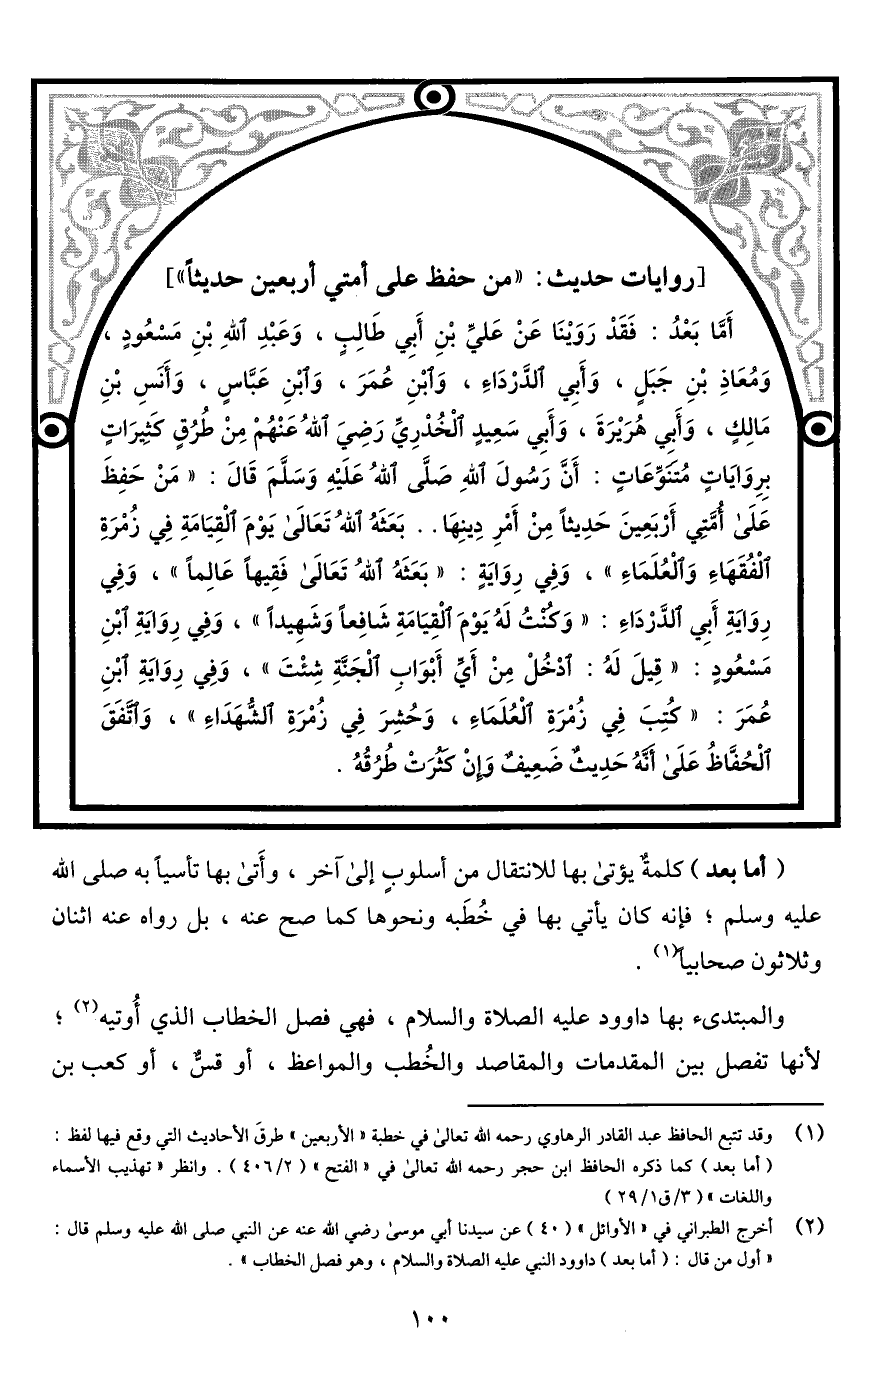 [روايات حديث: «من حفظ على أمتي أربعين حديثاً»]
أَمَّا بَعْدُ : فَقَدْ رَوَيْنَا عَنْ عَلِيِّ بْنِ أَبِي طَالِبٍ ، وَعَبْدِ ٱللهِ بْنِ مَسْعُودٍ ،
وَمُعَاذِ بْنِ جَبَلٍ ، وَأَبِي ٱلدَّرْدَاءِ ، وَٱبْنِ عُمَرَ ، وَٱبْنِ عَبَّاسٍ ، وَأَنَسِ بْنِ
مَالِكٍ ، وَأَبِي هُرَيْرَةَ ، وَأَبِي سَعِيدٍ ٱلْخُدْرِيِّ رَضِيَ ٱللهُ عَنْهُمْ مِنْ طُرُقٍ كَثِيرَاتٍ
بِرِوَايَاتٍ مُتَنَوِّعَاتٍ : أَنَّ رَسُولَ ٱللهِ صَلَّى ٱللهُ عَلَيْهِ وَسَلَّمَ قَالَ : « مَنْ حَفِظَ
عَلَىٰ أُمَّتِي أَرْبَعِينَ حَدِيثاً مِنْ أَمْرِ دِينِهَا. . بَعَثَهُ ٱللهُ تَعَالَىٰ يَوْمَ ٱلْقِيَامَةِ فِي زُمْرَةِ
ٱلْفُقَهَاءِ وَٱلْعُلَمَاءِ » ، وَفِي رِوَايَةٍ : « بَعَثَهُ ٱللهُ تَعَالَىٰ فَقِيهاً عَالِماً » ، وَفِي
رِوَايَةِ أَبِي ٱلدَّرْدَاءِ : « وَكُنْتُ لَهُ يَوْمَ ٱلْقِيَامَةِ شَافِعاً وَشَهِيداً » ، وَفِي رِوَايَةِ ٱبْنِ
مَسْعُودٍ : « قِيلَ لَهُ : ٱدْخُلْ مِنْ أَيِّ أَبْوَابِ ٱلْجَنَّةِ شِئْتَ » ، وَفِي رِوَايَةِ ٱبْنِ
عُمَرَ : « كُتِبَ فِي زُمْرَةِ ٱلْعُلَمَاءِ ، وَحُشِرَ فِي زُمْرَةِ ٱلشُّهَدَاءِ » ، وَٱتَّفَقَ
ٱلْحُفَّاظُ عَلَىٰ أَنَّهُ حَدِيثٌ ضَعِيفٌ وَإِنْ كَثُرَتْ طُرُقُهُ .
( أما بعد ) كلمةٌ يؤتىٰ بها للانتقال من أسلوبٍ إلىٰ آخر ، وأَتىٰ بها تأسياً به صلى الله
عليه وسلم ؛ فإنه كان يأتي بها في خُطَبه ونحوها كما صح عنه ، بل رواه عنه اثنان
وثلاثون صحابياً(١) .
والمبتدىء بها داوود عليه الصلاة والسلام ، فهي فصل الخطاب الذي أُوتيه(٢) ؛
لأنها تفصل بين المقدمات والمقاصد والخُطب والمواعظ ، أو قسٌّ ، أو كعب بن
(١) وقد تتبع الحافظ عبد القادر الرهاوي رحمه الله تعالىٰ في خطبة « الأربعين » طرقَ الأحاديث التي وقع فيها لفظ :
( أما بعد ) كما ذكره الحافظ ابن حجر رحمه الله تعالىٰ في « الفتح » ( ٤٠٦/٢ ) . وانظر « تهذيب الأسماء
واللغات » ( ٣/ق٢٩/١ )
(٢) أخرج الطبراني في « الأوائل » ( ٤٠ ) عن سيدنا أبي موسىٰ رضي الله عنه عن النبي صلى الله عليه وسلم قال :
« أول من قال : ( أما بعد ) داوود النبي عليه الصلاة والسلام ، وهو فصل الخطاب » .
١٠٠